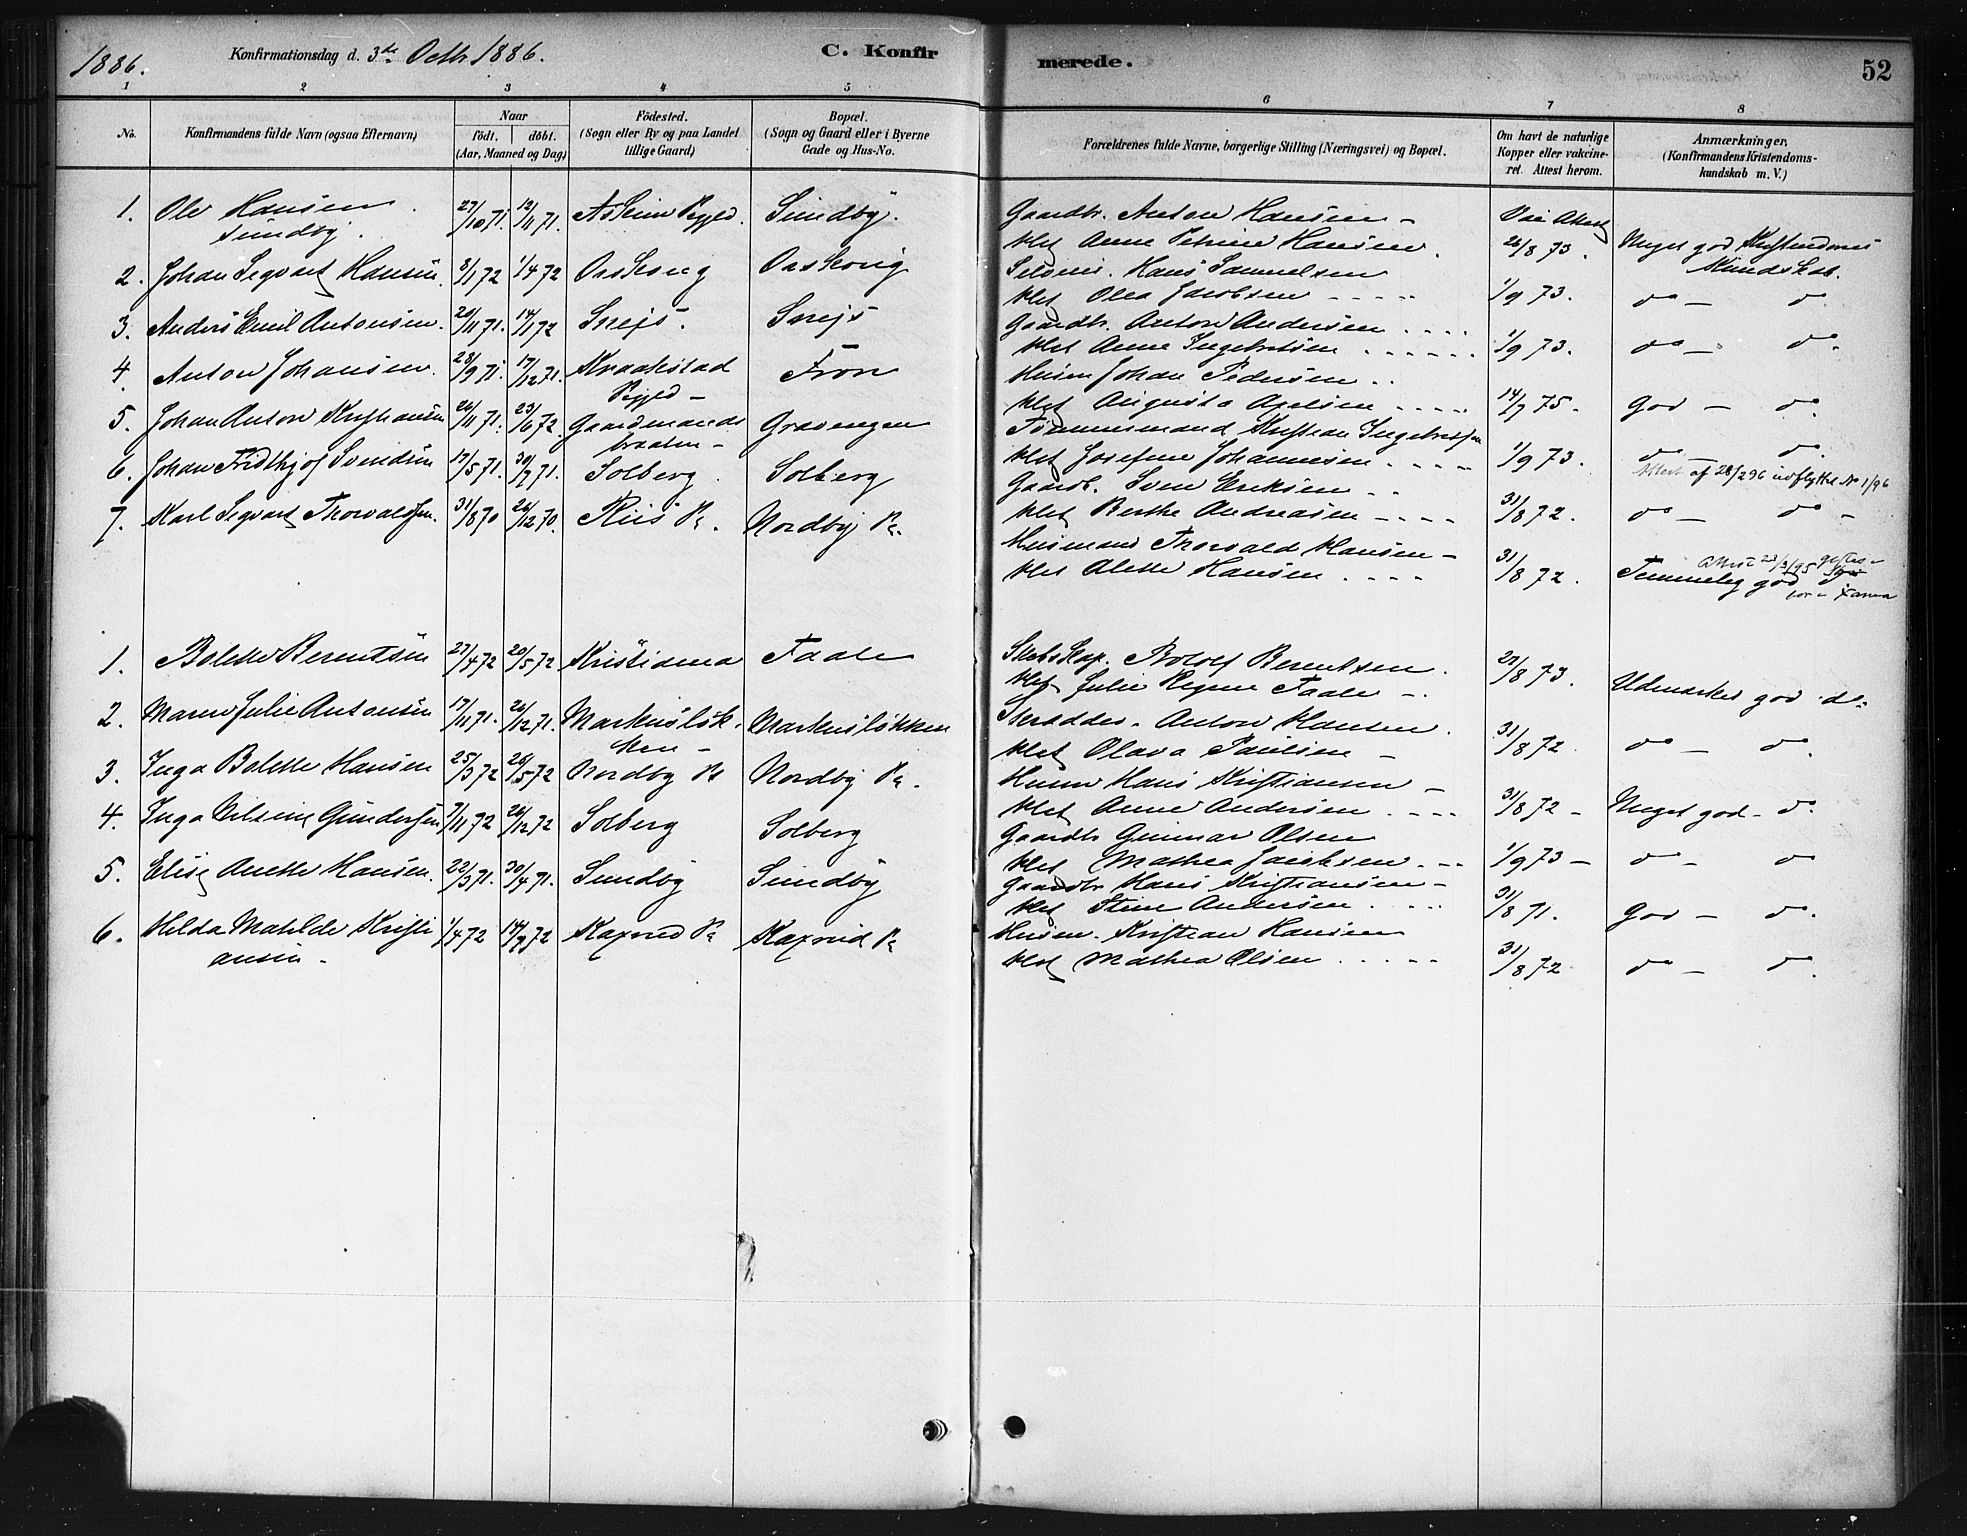 1886. Konfirmationsdag d. 3de Octb. 1886. C. Konfir
merede. 52
1 2 3 4 5
6 7 8
No. Konfirmandens fulde Navn (ogsaa Efternavn) Naar födt. döbt. (Aar, Maaned og Dag)
Födested. (Sogn eller By og paa Landet tillige Gaard)
Bopæl. (Sogn og Gaard eller i Byerne Gade og Hus-No.
Forældrenes fulde Navne, borgerlige Stilling (Næringsvei) og Bopæl.
Om havt de naturlige Kopper eller vakcineret. Attest herom.
Anmærkninger, (Konfirmandens Kristendomskundskab m. V.)
1. Ole Hansen 27/10 71. 12/11 71. Sundby.
Sundby.
Gaardbr. Anton Hansen –
Anne Petrine Hansen. 26/8 73. Meget god Kristendoms
Kundskab.
2. Johan Segvart Hansen. 8/1 72 1/4 72
Hans Samuelsen
Olea Jacobsen 1/9 73. do – do
3. Anders Emil Antonsen. 20/11 71. 14/1 72 Snejs. Snejs
Gaardbr. Anton Andersen
Anne Ingebretsen 1/9 73. do – do
4. Anton Johansen. 28/9 71. 17/12 71. Kraakstad Fron
Johan Pedersen
Augusta 14/7 75. God – do
5. Johan Anton Kristiansen 26/11 71. 23/6 72. Gaardmands Gravengen
braaten –
Tömmermand Kristian Ingebretsen
Josefine Johannesen 1/9 73. do – do
6. Johan Fridthjof Svendsen 17/5 71. 30/7 71. Solberg. Solberg
Attest af 28/2 96 udflyttet No 1/96
Gaardb. Sven Eriksen
Berthe Andreasen 31/8 72. do – do –
7. Karl Segvart Thorvaldsen. 31/8 70 26/12 70. Riis Pl. Nordby Pl.
Husmand Thorvald Hansen –
Alette Hansen 31/8 72. Temmelig god do
Attest 23/3/95
1. Bolette Berentsen 27/4 72 20/5 72 Kristiania Faale
Berentsen. 22/8 73.
Julie Regine Faale –. Udmærket god do
2. Maren Julie Antonsen 17/11 71. 26/12 71. Markuslök- Markuslökken
ken –
Skrædder. Anton Hansen.
Olava Paulsen – 31/8 72 do – do
3. Inga Bolette Hansen 25/3 72 26/5 72 Nordby Pl Nordby Pl.
Hans Kristiansen –
Anne Andersen 31/8 72 – Meget god – do
4. Inga Nilsine Gundersen 7/11 72 26/12 72 Solberg Solberg
Gaardbr Gunnar Olsen
Mathea Jacobsen 1/9 73 – do – do
5. Elise Anette Hansen. 22/3 71. 30/4 71. Sundby Sundby
Gaardbr Hans Kristiansen –
Stine Andersen 31/8 71. God – do.
6. Hilda Matilde Kristi 1/4 72 14/7 72 Kaxrud Pl Kaxrud Pl
ansen –
Husm. Kristian Hansen
Mathea Olsen 31/8 72 do – do.